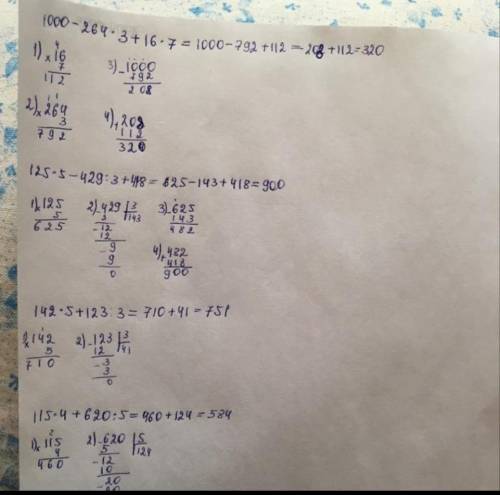 1000-264·3+16·7=1000-792+112=208+112=320
1) ×16
7
112
3) -1000
792
208
2) ×264
3
792
4) +208
112
320
125·5-429:3+418=625-143+418=900
1) ×125
5
625
2) -429 3
3 143
-12
12
-9
9
0
3) -625
143
482
4) +482
418
900
142·5+123:3=710+41=751
1) ×142
5
710
2) -123 3
12 41
-3
3
0
115·4+620:5=460+124=584
1) ×115
4
460
2) -620 5
5 124
-12
10
-20
20